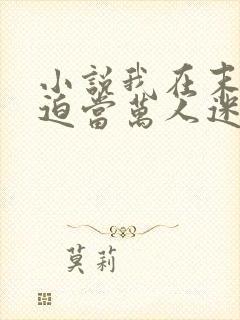 小說我在末
迫當萬人迷
莫莉